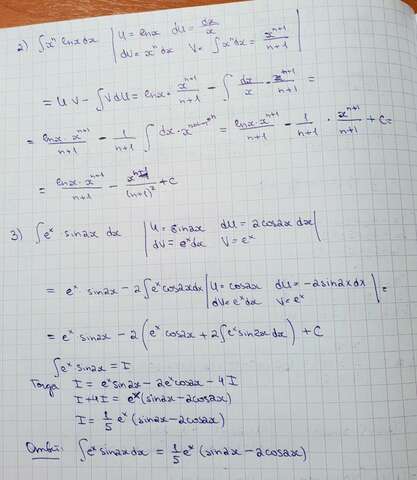 2) ∫xⁿ lnx dx | U = lnx dU = dx/x
dV = xⁿdx V = ∫xⁿdx = xⁿ⁺¹/n+1 |
= UV - ∫VdU = lnx · xⁿ⁺¹/n+1 - ∫ dx/x · xⁿ⁺¹/n+1 =
= lnx · xⁿ⁺¹/n+1 - 1/n+1 ∫ dx · = lnx · xⁿ⁺¹/n+1 - 1/n+1 · xⁿ⁺¹/n+1 + C =
= lnx · xⁿ⁺¹/n+1 - xⁿ⁺¹/(n+1)² + C
3) ∫eˣ sin2x dx | U = sin2x dU = 2cos2x dx |
dV = eˣdx V = eˣ
= eˣ sin2x - 2∫eˣcos2xdx | U = cos2x dU = -2sin2xdx | =
dV = eˣdx V = eˣ
= eˣ sin2x - 2(eˣ cos2x + 2∫eˣsin2xdx) + C
∫eˣsin2x = I
Тогда I = eˣsin2x - 2eˣcos2x - 4I
I+4I = eˣ(sin2x - 2cos2x)
I = 1/5 eˣ (sin2x - 2cos2x)
Ответ: ∫eˣsin2xdx = 1/5 eˣ (sin2x - 2cos2x)